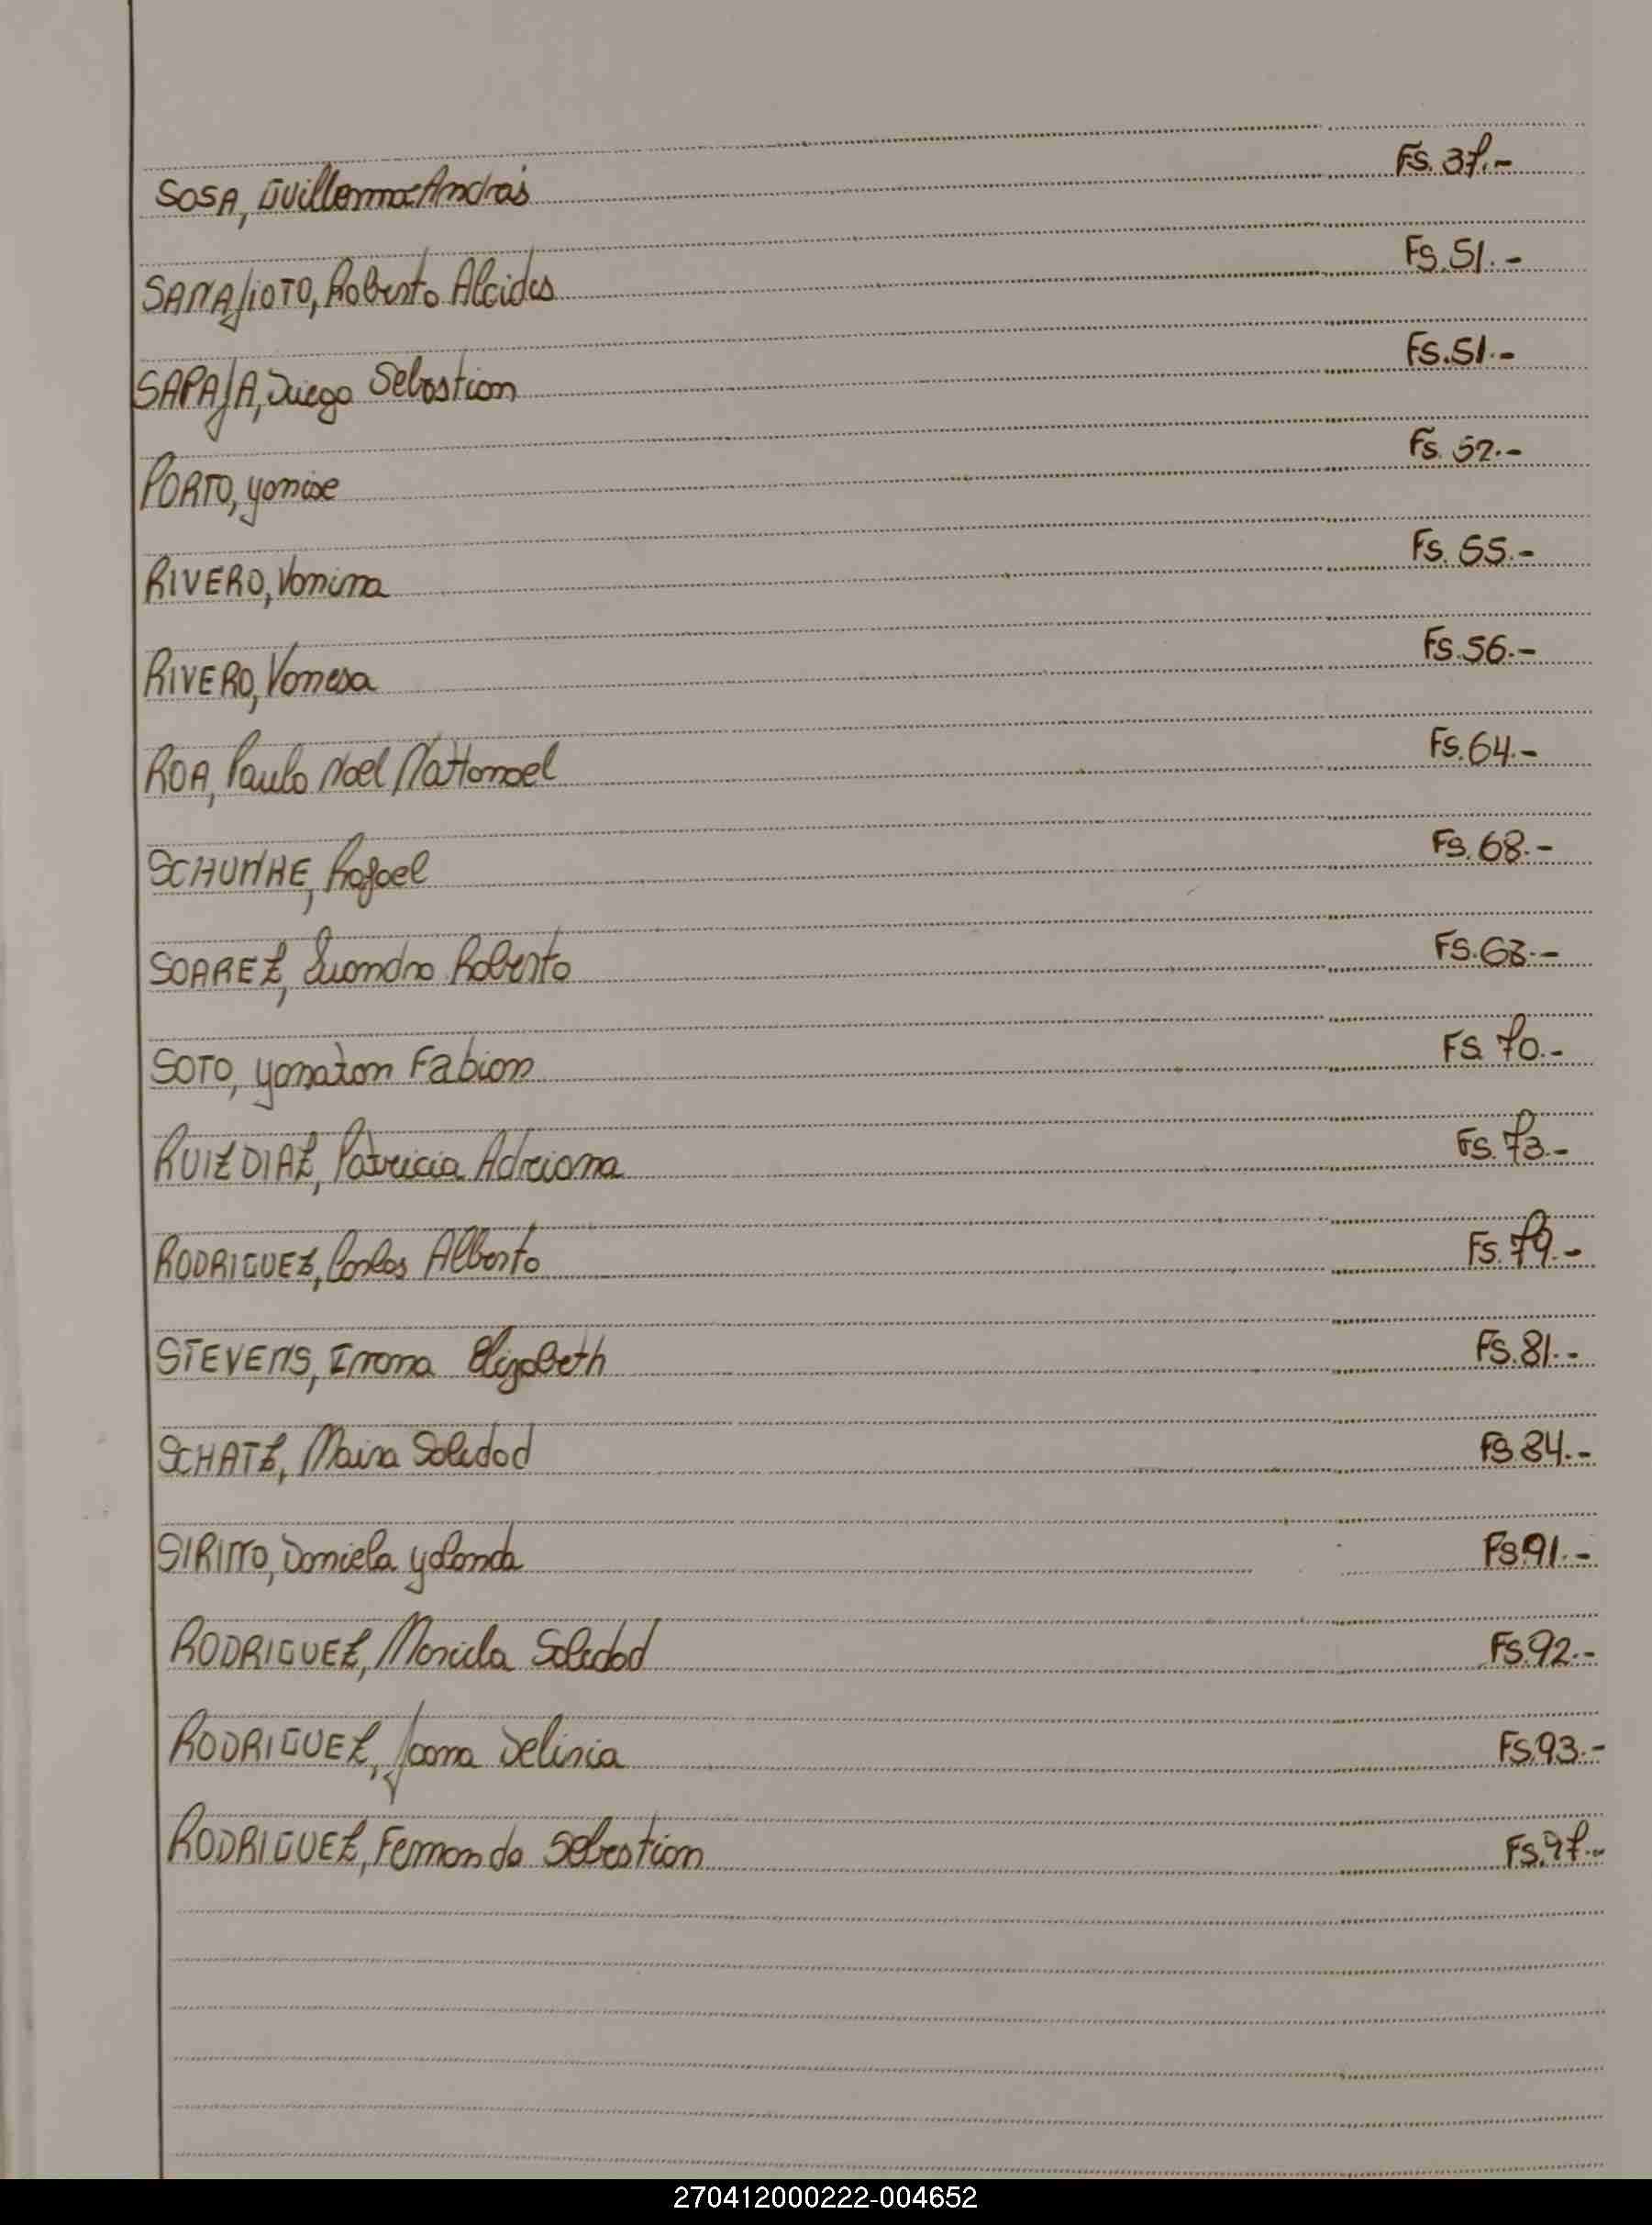 SOSA, Guillermo Andrés Fs. 37.-
SANAJIOTO, Roberto Alcides Fs. 51.-
SAPAJA, Diego Sebastian Fs. 51.-
PORTO, yanise Fs. 52.-
RIVERO, Vanina Fs. 55.-
RIVERO, Vanesa Fs. 56.-
ROA, Paulo Noel Nattanael Fs. 64.-
SCHUNKE, Rafael Fs. 68.-
SOAREZ, Luandro Roberto Fs. 68.-
SOTO, yonatan Fabian Fs. 70.-
RUIZ DIAZ, Patricia Adriana Fs. 73.-
RODRIGUEZ, Carlos Alberto Fs. 79.-
STEVENS, Irma Elizabeth Fs. 81.-
SCHATZ, Maira Soledad Fs. 84.-
SIRINO, Daniela yolanda Fs. 91.-
RODRIGUEZ, Mariela Soledad Fs. 92.-
RODRIGUEZ, Joana Delicia Fs. 93.-
RODRIGUEZ, Fernando Sebastian Fs. 97.-
270412000222-004652